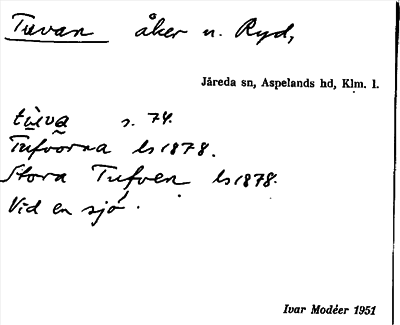 Tuvan åker n. Ryd,
Järeda sn, Aspelands hd, Klm. l.
tùva s. 74.
Tufvorna ls 1878.
Stora Tufven ls 1878.
Vid en sjö.
Ivar Modéer 1951